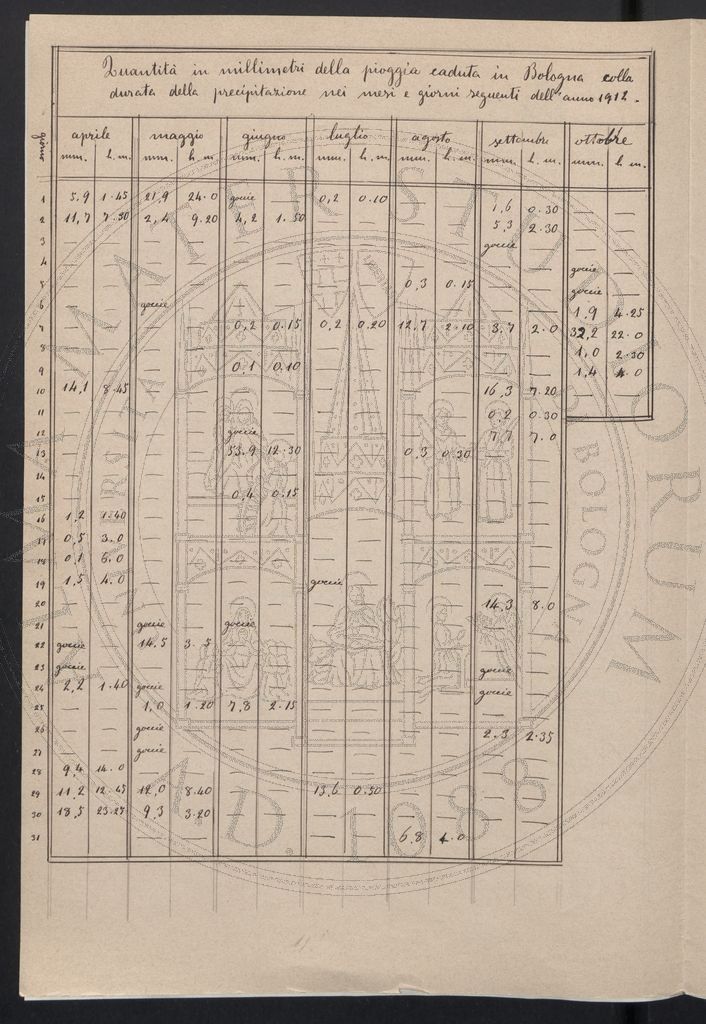 Quantità in millimetri della pioggia caduta in Bologna colla
durata della precipitazione nei mesi e giorni seguenti dell'anno 1912.
giorno aprile maggio giugno luglio agosto settembre ottobre
mm. h. m. mm. h. m. mm. h. m. mm. h. m. mm. h. m. mm. h. m. mm. h. m.
1 5,9 1.45 21,9 24.0 goccie — 0,2 0.10 — — 1,6 0.30 — —
2 11,7 7.50 2,4 9.20 4,2 1.50 — — — — 5,3 2.30 — —
3 — — — — — — — — — — goccie — — —
4 — — — — — — — — — — — — goccie —
5 — — — — — — — — 0,3 0.15 — — goccie —
6 — — goccie — — — — — — — — — 1,9 4.25
7 — — — — 0,2 0.15 0,2 0.20 12,7 2.10 3,7 2.0 32,2 22.0
8 — — — — — — — — — — — — 1,0 2.30
9 — — — — 0,1 0.10 — — — — — — 1,4 4.0
10 14,1 8.45 — — — — — — — — 16,3 7.20 — —
11 — — — — — — — — — — 0,2 0.30
12 — — — — goccie — — — — — 7,7 7.0
13 — — — — 53,9 12.30 — — 0,3 0.30 — —
14 — — — — — — — — — — — —
15 — — — — 0,4 0.15 — — — — — —
16 1,2 1.40 — — — — — — — — — —
17 0,5 3.0 — — — — — — — — — —
18 0,1 6.0 — — — — — — — — — —
19 1,5 4.0 — — — — goccie — — — — —
20 — — — — — — — — — — 14,3 8.0
21 — — goccie — goccie — — — — — — —
22 goccie — 14,5 3.5 — — — — — — — —
23 goccie — — — — — — — — — goccie —
24 2,2 1.40 goccie — — — — — — — goccie —
25 — — 1,0 1.20 7,8 2.15 — — — — — —
26 — — goccie — — — — — — — 2,3 2.35
27 — — goccie — — — — — — — — —
28 9,4 14.0 — — — — — — — — — —
29 11,2 12.45 12,0 8.40 — — 13,6 0.50 — — — —
30 18,5 23.25 9,3 3.20 — — — — — — — —
31 — — — — 6,8 4.0
ALMA MATER STUDIORUM
UNIVERSITÀ BOLOGNA
A.D. 1088